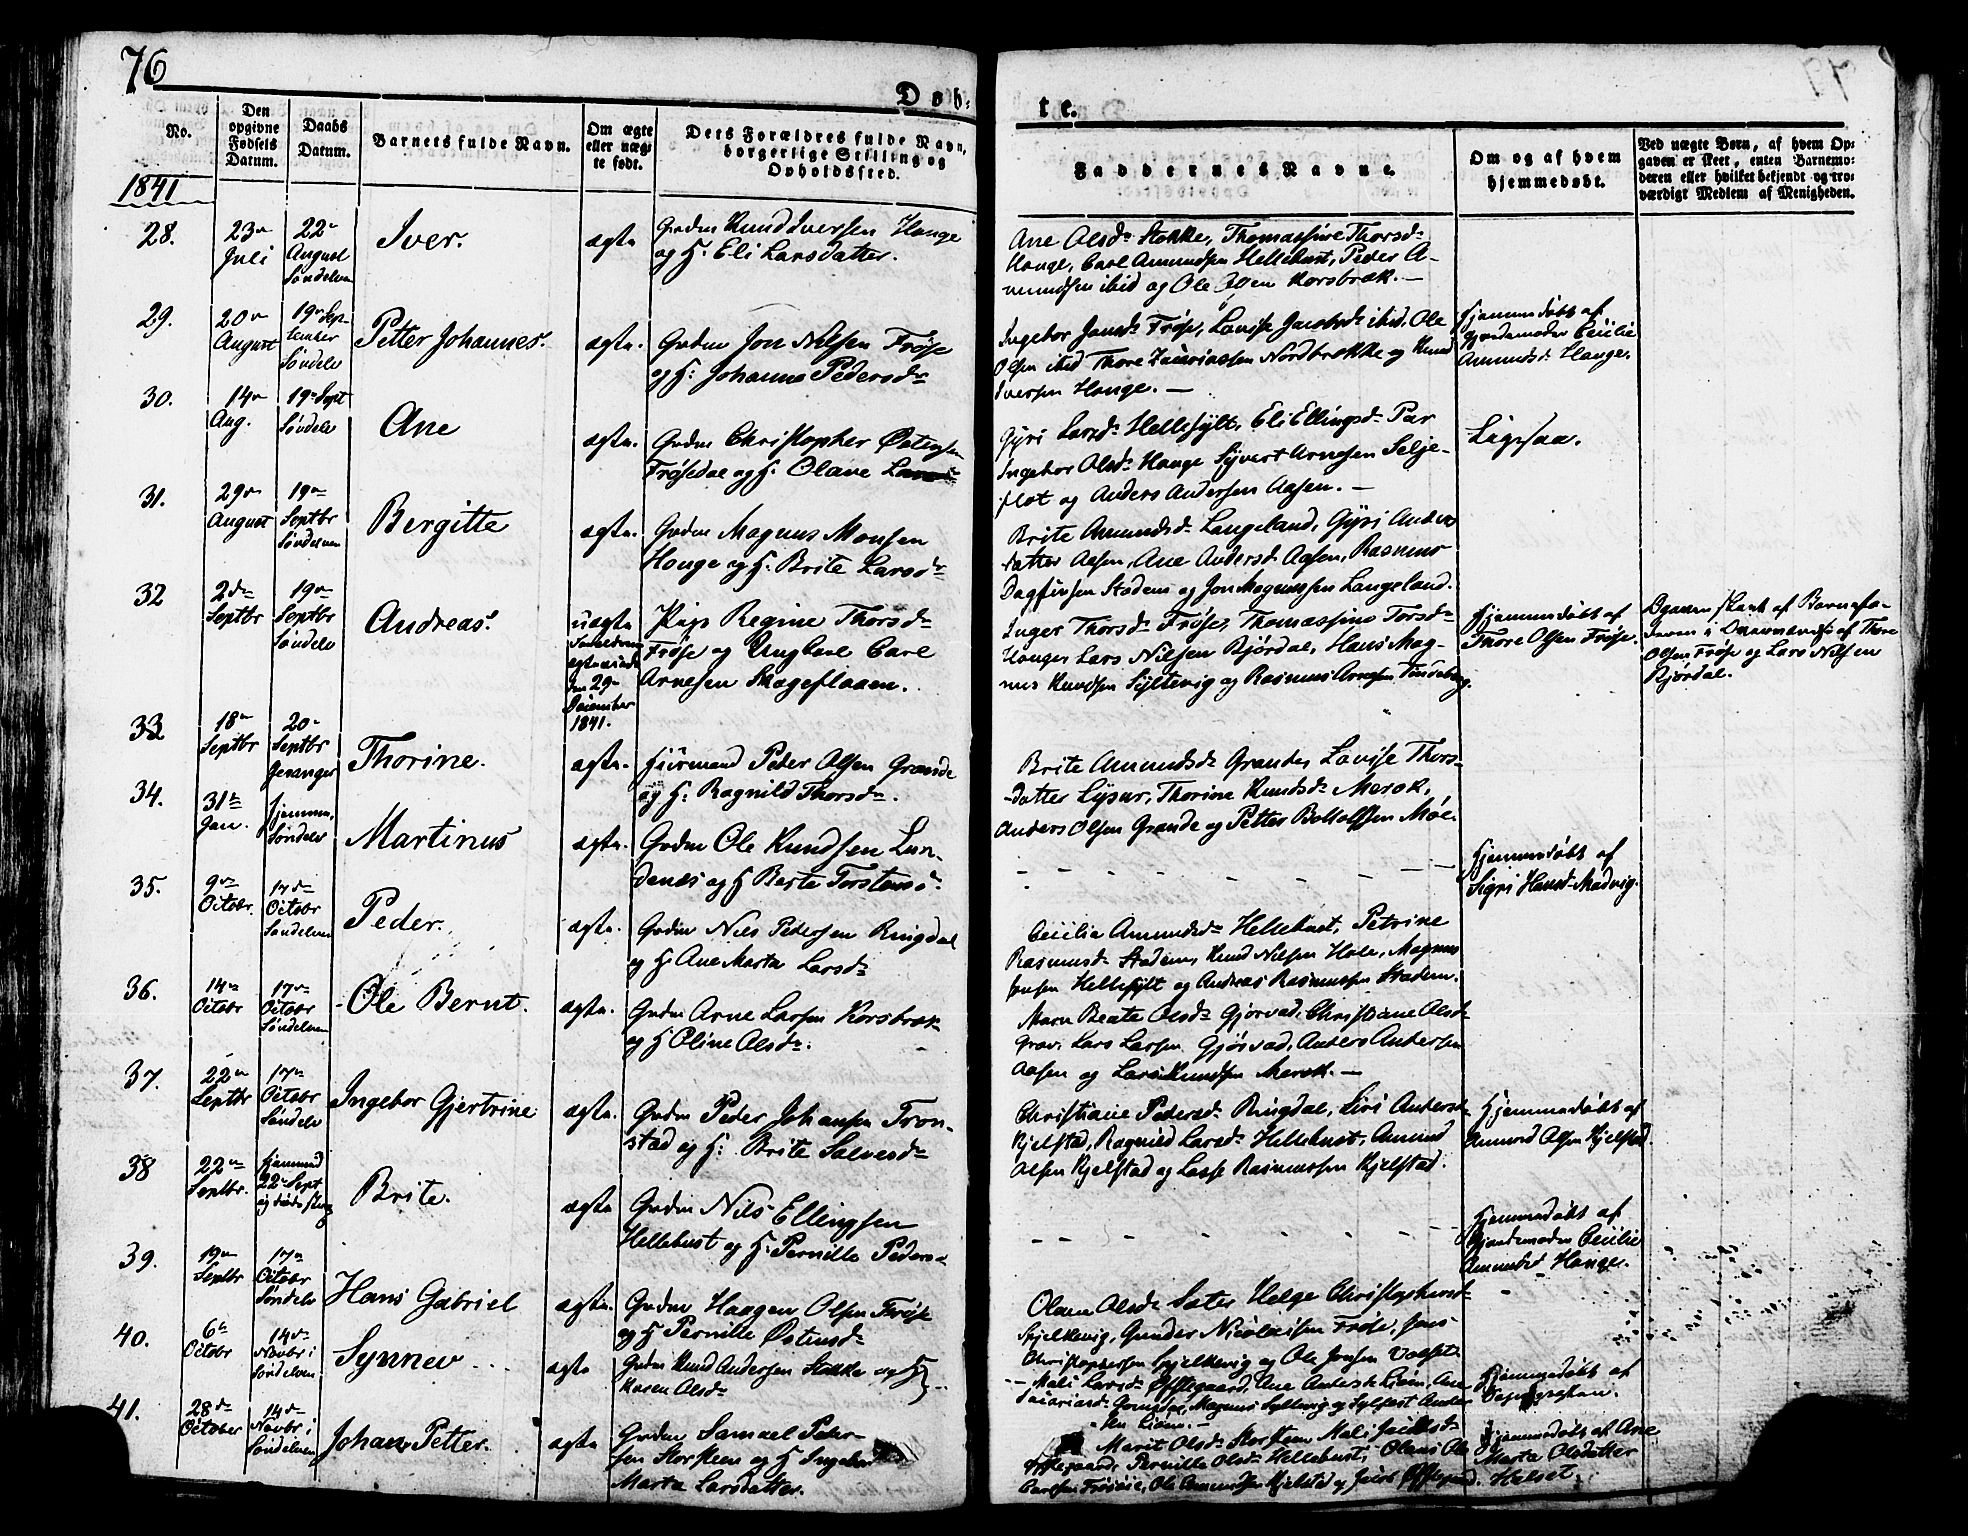 76
Døb-
te.
No.
Den opgivne Fødsels Datum.
Daabs Datum.
Barnets fulde Navn.
Om ægte eller uæg-te født.
Dets Forældres fulde Navn, borgerlige Stilling og Opholdssted.
Faddernes Navne.
Om og af hvem hjemmedøbt.
Ved uægte Børn, af hvem Op-
gaven er skeet, enten Barnemo-
deren eller hvilket bekjendt og tro-
værdigt Medlem af Menigheden.
1841
28.
23de Juli
22de August Søndelven
Iver.
ægte
Gaardm Knud Iversen Hauge
og H. Eli Larsdatter.
Ane Olsdr Stokke, Thomassine Thorsdr
Hauge, Carl Amundsen Hellebust, Peder A-
mundsen ibid og Ole Olsen Korsbræk. —
29.
20de August
19de Sep-tember Søndelv
Petter Johannes.
ægte.
Gaardm Jon Nilsen Frøse
og H: Johanne Pedersdr
Ingebor Jonsdr Frøse, Lovise Jacobsdr ibid, Ole
Olsen ibid Thore Zacariassen Nordbrække og Knud
Iversen Hauge. —
Hjemmedøbt af
Gjordemoder Cecilie
Amundsdr Hauge.
30.
14de Aug.
19de Sept Søndelv
Ane
ægte.
Gaardm Christopher Østensen
Frøsedal og H. Olave Larsdr
Gyri Larsdr Hellesylt, Eli Ellingsdr
Ingebor Olsdr Hauge Syvert Arnesen Selje-
flot og Anders Andersen Aasen. —
Ligesaa.
31.
29de August
19de Septbr Søndelven
Bergitte
ægte.
Gaardm Magnus Monsen
Hauge og H: Brite Larsdr
Brite Amundsdr Langeland, Gyri Anders
datter Aasen, Ane Andersdr Aasen, Rasmus
Dagfinsen Stadem og Jon Magnussen Langeland.
32
2de Septbr
19de Septbr Søndelv
Andreas.
uægte
Forældrene
ægtevied
den 29de
December
1841.
Pige Regine Thorsdr
Frøse og Ungkarl Carl
Arnesen Skageflaaen.
Inger Thorsdr Frøse, Thomassine Torsdr
Hauge, Lars Nilsen Bjørdal, Hans Mag-
nus Knudsen Syltevig og Rasmus Arnesen
Hjemmedøbt af
Thore Olsen Frøse.
Opgaven skeet af Barnefa-
deren i Overværelse af Thore
Olsen Frøse og Lars Nilsen
Bjørdal.
33
18de Septbr
20de Septbr Geranger
Thorine.
ægte.
Huusmand Peder Olsen Grande
og H: Ragnild Thorsdr.
Brite Amundsdr Grande, Lovise Thors-
datter, Thorine Knudsdr Merok,
Anders Olsen Grande og Petter Bottolfsen Møe.
34.
31te Jan.
Hjemme, Søndelv
Martinus
ægte.
Gaardm Ole Knudsen Lun-
denes og H Berte Torstensdr.
Hjemmedøbt af
Sigri Hansdr Madvig.
35.
9de Octobr.
17de Octobr Søndelven
Peder.
ægte.
Gaardm Nils Pedersen Ringdal
og H Ane Marta Larsdr
Cecilia Amundsdr Hellebust, Petrine
Rasmusdr Stadem, Knud Nilsen Hole, Magnus
Jensen Hellesylt og Andreas Rasmussen Stadem.
36.
14de Octobr
17de Octobr Søndelven
Ole Bernt.
ægte.
Gaardm Arne Larsen Korsbræk
og H Oline Olsdr.
Maren Beate Olsdr Gjørvad, Christiane Olsdr
Grav, Lars Larsen Gjørvad, Anders Andersen
Aasen og Lars Knudsen Merok. —
37.
22de Septbr
17de Octobr Søndelv
Ingebor Gjertrine
ægte.
Gaardm Peder Johansen Tron-
stad og H: Brite Salvesdr
Christiane Pedersdr Ringdal, Siri Andersdr
Kjelstad, Ragnild Larsdr Hellebust, Amund
Olsen Kjelstad og Lasse Rasmussen Kjelstad.
Hjemmedøbt af
Amund Olsen Kjelstad.
38
22de Septbr.
Hjemmed 22de Sept og døde strax
Brite.
ægte
Gaardm Nils Ellingsen
Hellebust og H: Pernille Pedersdr
Hjemmedøbt af
Gjordemoder Cecilie
Amundsdr Hauge.
39.
19de Septbr
17de Octobr Søndelv
Hans Gabriel
ægte.
Gaardm Haagen Olsen Frøse
og H Pernille Østensdr
Olava Olsdr Sæter Helge Christophersdr
Spjelkevig, Gunder Nicolaisen Frøse, Jens
Christophersen Spjelkevig og Ole Jonsen
40.
6te Octobr
14de Novbr i Søndelven
Synnev
ægte
Gaardm Knud Andersen Stokke og H.
Karen Olsdr
Mali Larsdr Øfstegaard, Ane Andersdr Lien, Ane
Zacariasdr, Magnus Syltevig og Sylfest Ander
sen Lien. —
Hjemmedøbt af
41.
28de October
14de Novbr i Søndelven
Johan Petter.
ægte
Gaardm Samuel Peder-
sen Storsteen og H Ingebor
Marta Larsdatter.
Marit Olsdr Storsteen Mali Jacobsdr
Øfstegaard, Pernille Olsdr Hellebust, Olaus Ole
Carlsen Frøsøie, Ole Amundsen Kjelstad og Jacob Øfstegaard.
Hjemmedøbt af Ane
Marta Olsdatter
Helset.